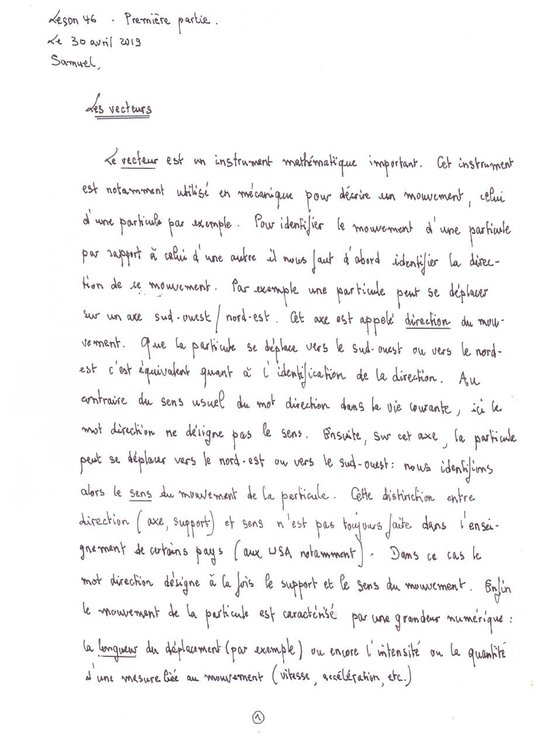 Leçon 46 - Première partie.
Le 30 avril 2019
Samuel,
Les vecteurs
Le vecteur est un instrument mathématique important. Cet instrument
est notamment utilisé en mécanique pour décrire un mouvement, celui
d'une particule par exemple. Pour identifier le mouvement d'une particule
par rapport à celui d'une autre il nous faut d'abord identifier la direc-
tion de ce mouvement. Par exemple une particule peut se déplacer
sur un axe sud-ouest/nord-est. Cet axe est appelé direction du mou-
vement. Que la particule se déplace vers le sud-ouest ou vers le nord-
est c'est équivalent quant à l'identification de la direction. Au
contraire du sens usuel du mot direction dans la vie courante, ici le
mot direction ne désigne pas le sens. Ensuite, sur cet axe, la particule
peut se déplacer vers le nord-est ou vers le sud-ouest: nous identifions
alors le sens du mouvement de la particule. Cette distinction entre
direction (axe, support) et sens n'est pas toujours faite dans l'ensei-
gnement de certains pays (aux USA notamment). Dans ce cas le
mot direction désigne à la fois le support et le sens du mouvement. Enfin
le mouvement de la particule est caractérisé par une grandeur numérique:
la longueur du déplacement (par exemple) ou encore l'intensité ou la quantité
d'une mesure liée au mouvement (vitesse, accélération, etc.)
1